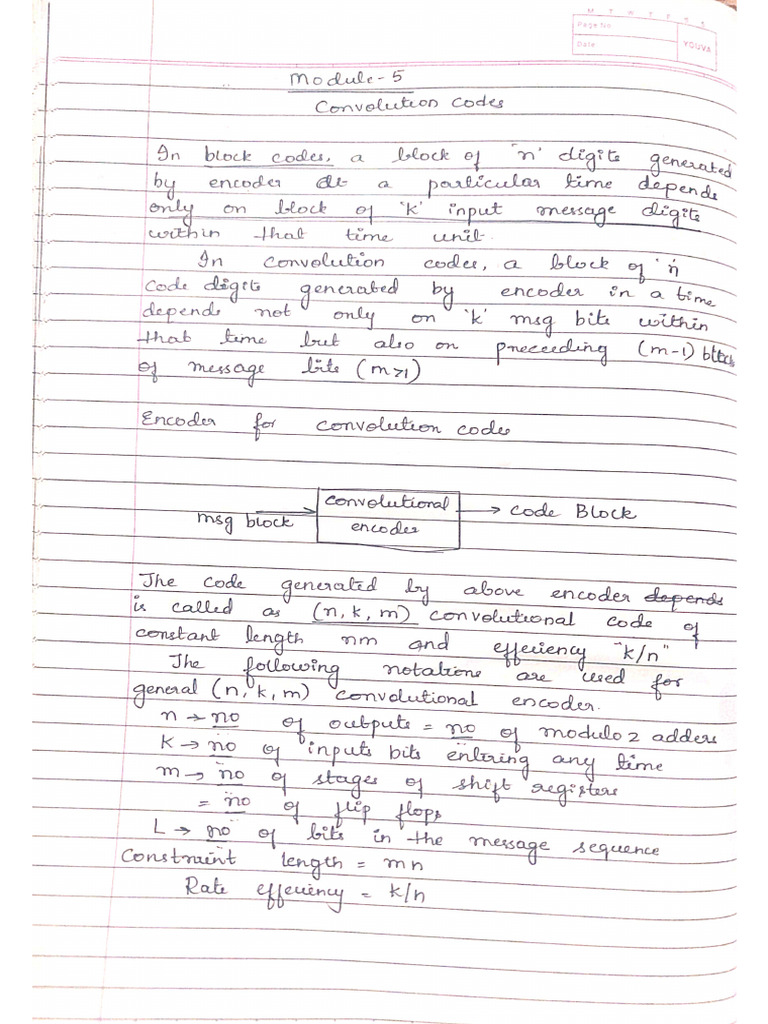 M T W T F S S
Page No.
Date:
YOUVA
Module-5
Convolution Codes
In block codes, a block of 'n' digits generated
by encoder at a particular time depends
only on block of 'k' input message digits
within that time unit.
In convolution codes, a block of 'n'
code digits generated by encoder in a time
depends not only on 'k' msg bits within
that time but also on preceeding (m-1) blocks
of message bits (m>1)
Encoder for convolution codes
msg block
convolutional
encoder
code Block
The code generated by above encoder depends
is called as (n, k, m) convolutional code of
constant length nm and effeciency "k/n"
The following notations are used for
general (n, k, m) convolutional encoder.
n → no of outputs = no of modulo 2 adders
k → no of inputs bits entering any time
m → no of stages of shift registers
= no of flip flops
L → no of bits in the message sequence
Constraint length = mn
Rate effeciency = k/n